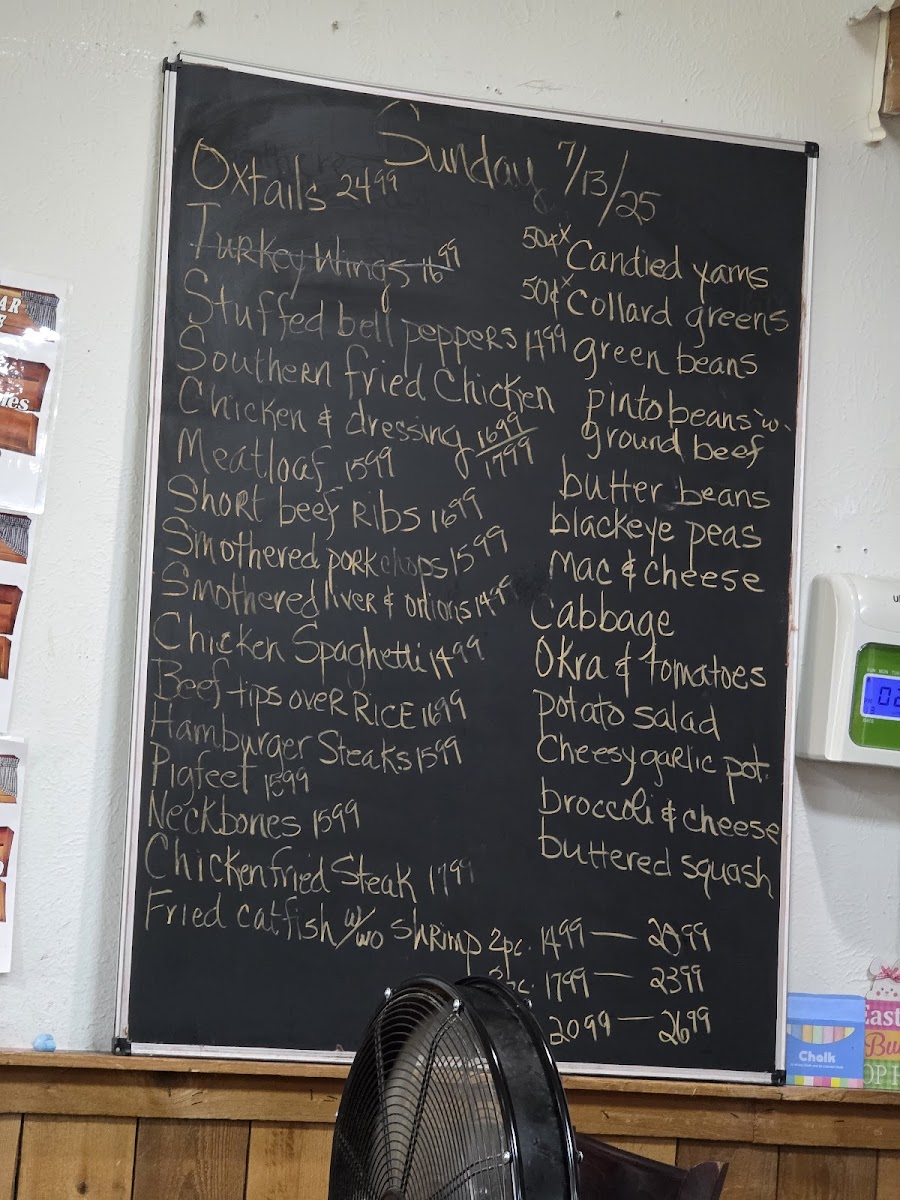 Sunday 7/13/25
Oxtails 24 99
Turkey Wings 16 99
Stuffed bell peppers 14 99
Southern fried Chicken
Chicken & dressing 16 99 / 17 99
Meatloaf 15 99
Short beef Ribs 16 99
Smothered pork chops 15 99
Smothered liver & onions 14 99
Chicken Spaghetti 14 99
Beef tips over Rice 16 99
Hamburger Steaks 15 99
Pigfeet 15 99
Neckbones 15 99
Chicken fried Steak 17 99
Fried catfish w/wo Shrimp 2pc. 14 99 — 20 99
pc. 17 99 — 23 99
20 99 — 26 99
50¢ x Candied yams
50¢ x Collard greens
green beans
pinto beans w.
ground beef
butter beans
blackeye peas
Mac & cheese
Cabbage
Okra & tomatoes
potato salad
Cheesy garlic pot.
broccoli & cheese
buttered squash
Chalk